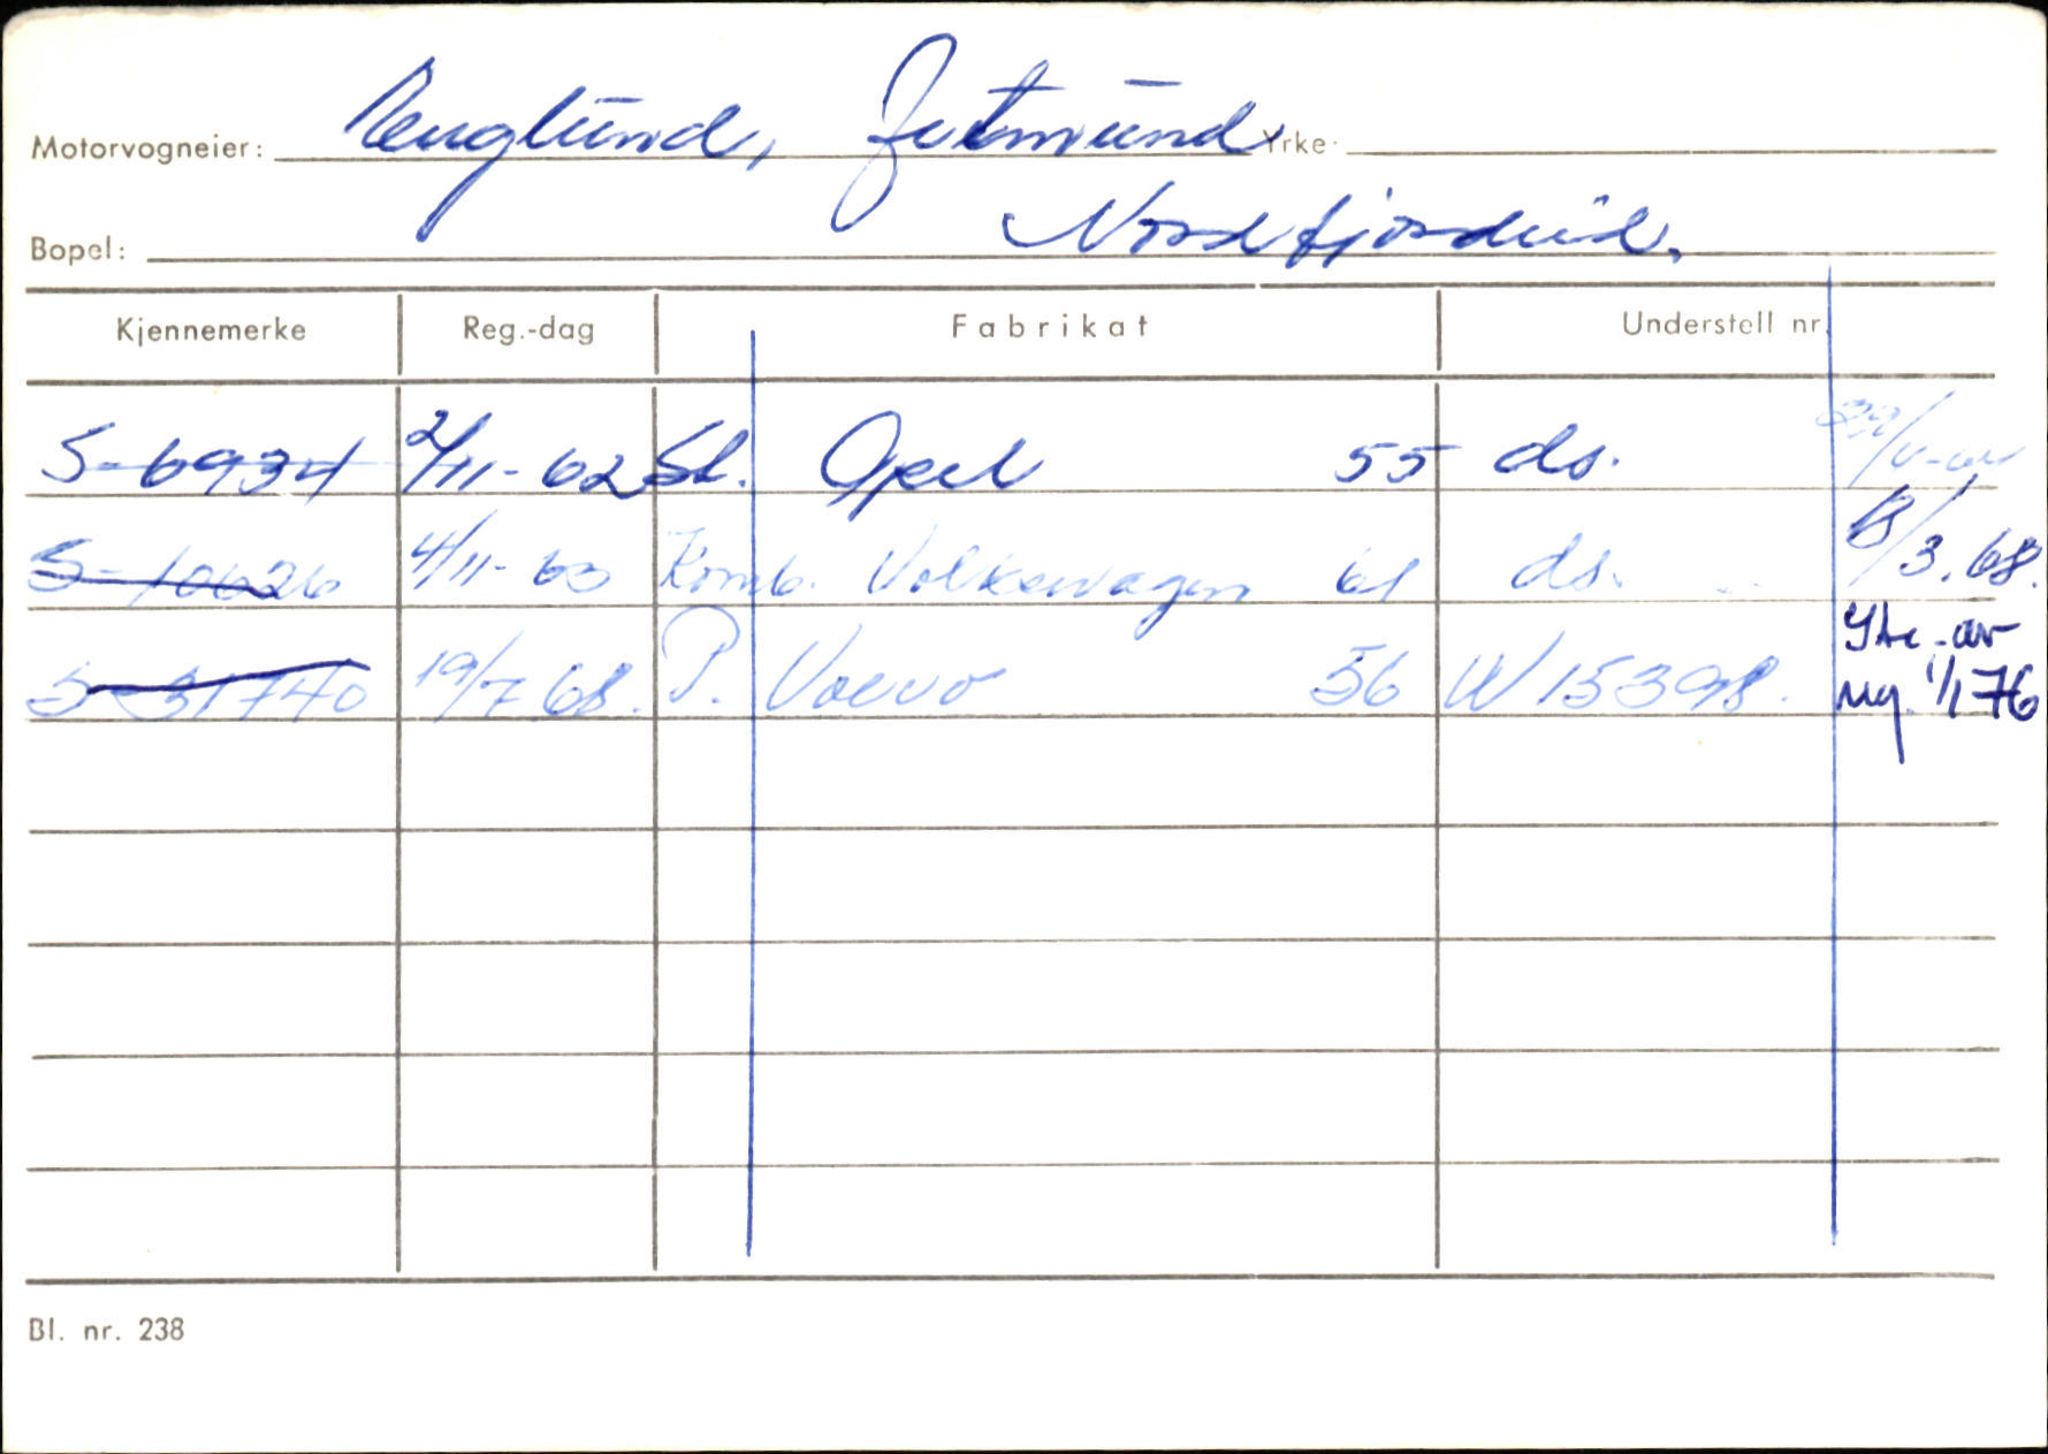 Motorvogneier: Englund, Jetmund Yrke:
Bopel: Nordfjordeid.
Kjennemerke Reg.-dag Fabrikat Understell nr.
S-6934 2/11-62 St. Opel 55 ds.
S-10626 4/11-63 Komb. Volkswagen 61 ds. 13/3.68.
S-31740 19/7 68. P. Volvo 56 W 15398. av reg. 1/1 76
Bl. nr. 238